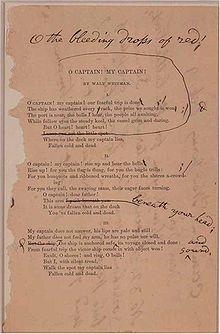 O the bleeding drops of red!
O CAPTAIN! MY CAPTAIN!
BY WALT WHITMAN.
I.
O CAPTAIN! my captain! our fearful trip is done;
The ship has weathered every rack, the prize we sought is won;
The port is near, the bells I hear, the people all exulting,
While follow eyes the steady keel, the vessel grim and daring.
But O heart! heart! heart!
Where on the deck my captain lies,
Fallen cold and dead.
II.
O captain! my captain! rise up and hear the bells;
Rise up! for you the flag is flung, for you the bugle trills;
For you bouquets and ribboned wreaths, for you the shores a-crowding;
For you they call, the swaying mass, their eager faces turning.
O captain! dear father!
This arm
beneath your head;
It is some dream that on the deck
You've fallen cold and dead.
III.
My captain does not answer, his lips are pale and still;
My father does not feel my arm, he has no pulse nor will.
the ship is anchored safe, its voyage closed and done;
and
sound
From fearful trip the victor ship comes in with object won!
Exult, O shores! and ring, O bells!
But I, with silent tread,
Walk the spot my captain lies
Fallen cold and dead.